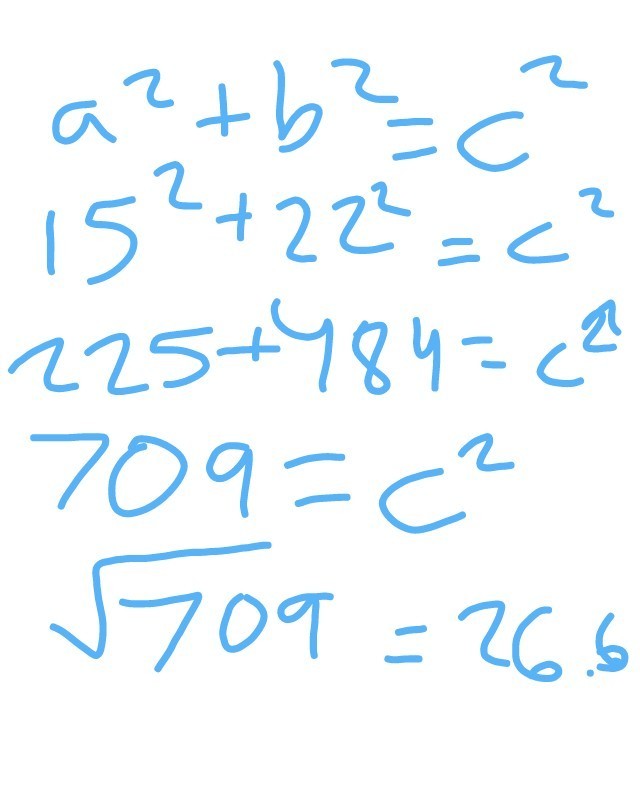 a² + b² = c²
15² + 22² = c²
225 + 484 = c²
709 = c²
√709 = 26.6